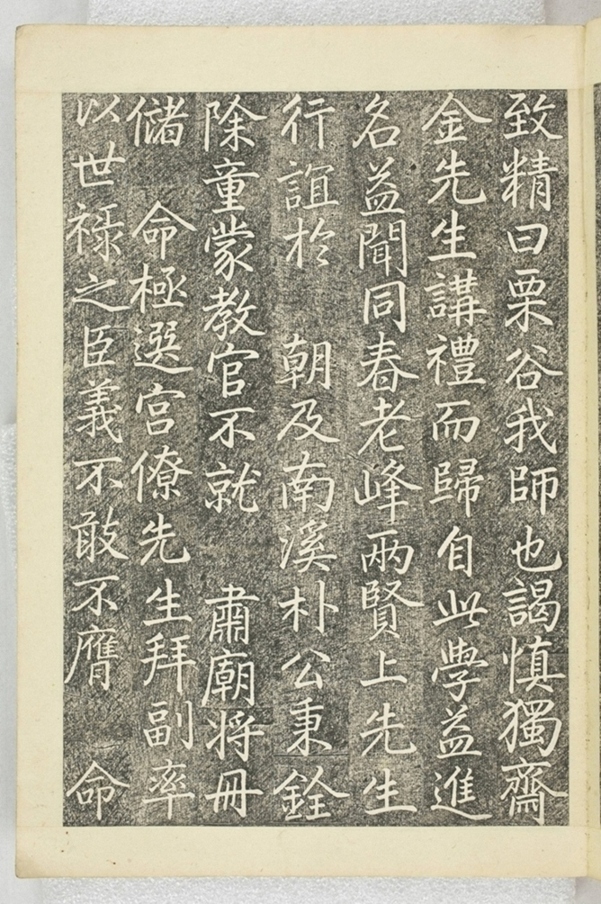 致精曰栗谷我師也謁慎獨齋
金先生講禮而歸自此學益進
名益聞同春老峰兩賢上先生
行誼於 朝及南溪朴公秉銓
除童蒙教官不就 肅廟將冊
儲 命極選宮僚先生拜副率
以世祿之臣義不敢不膺 命